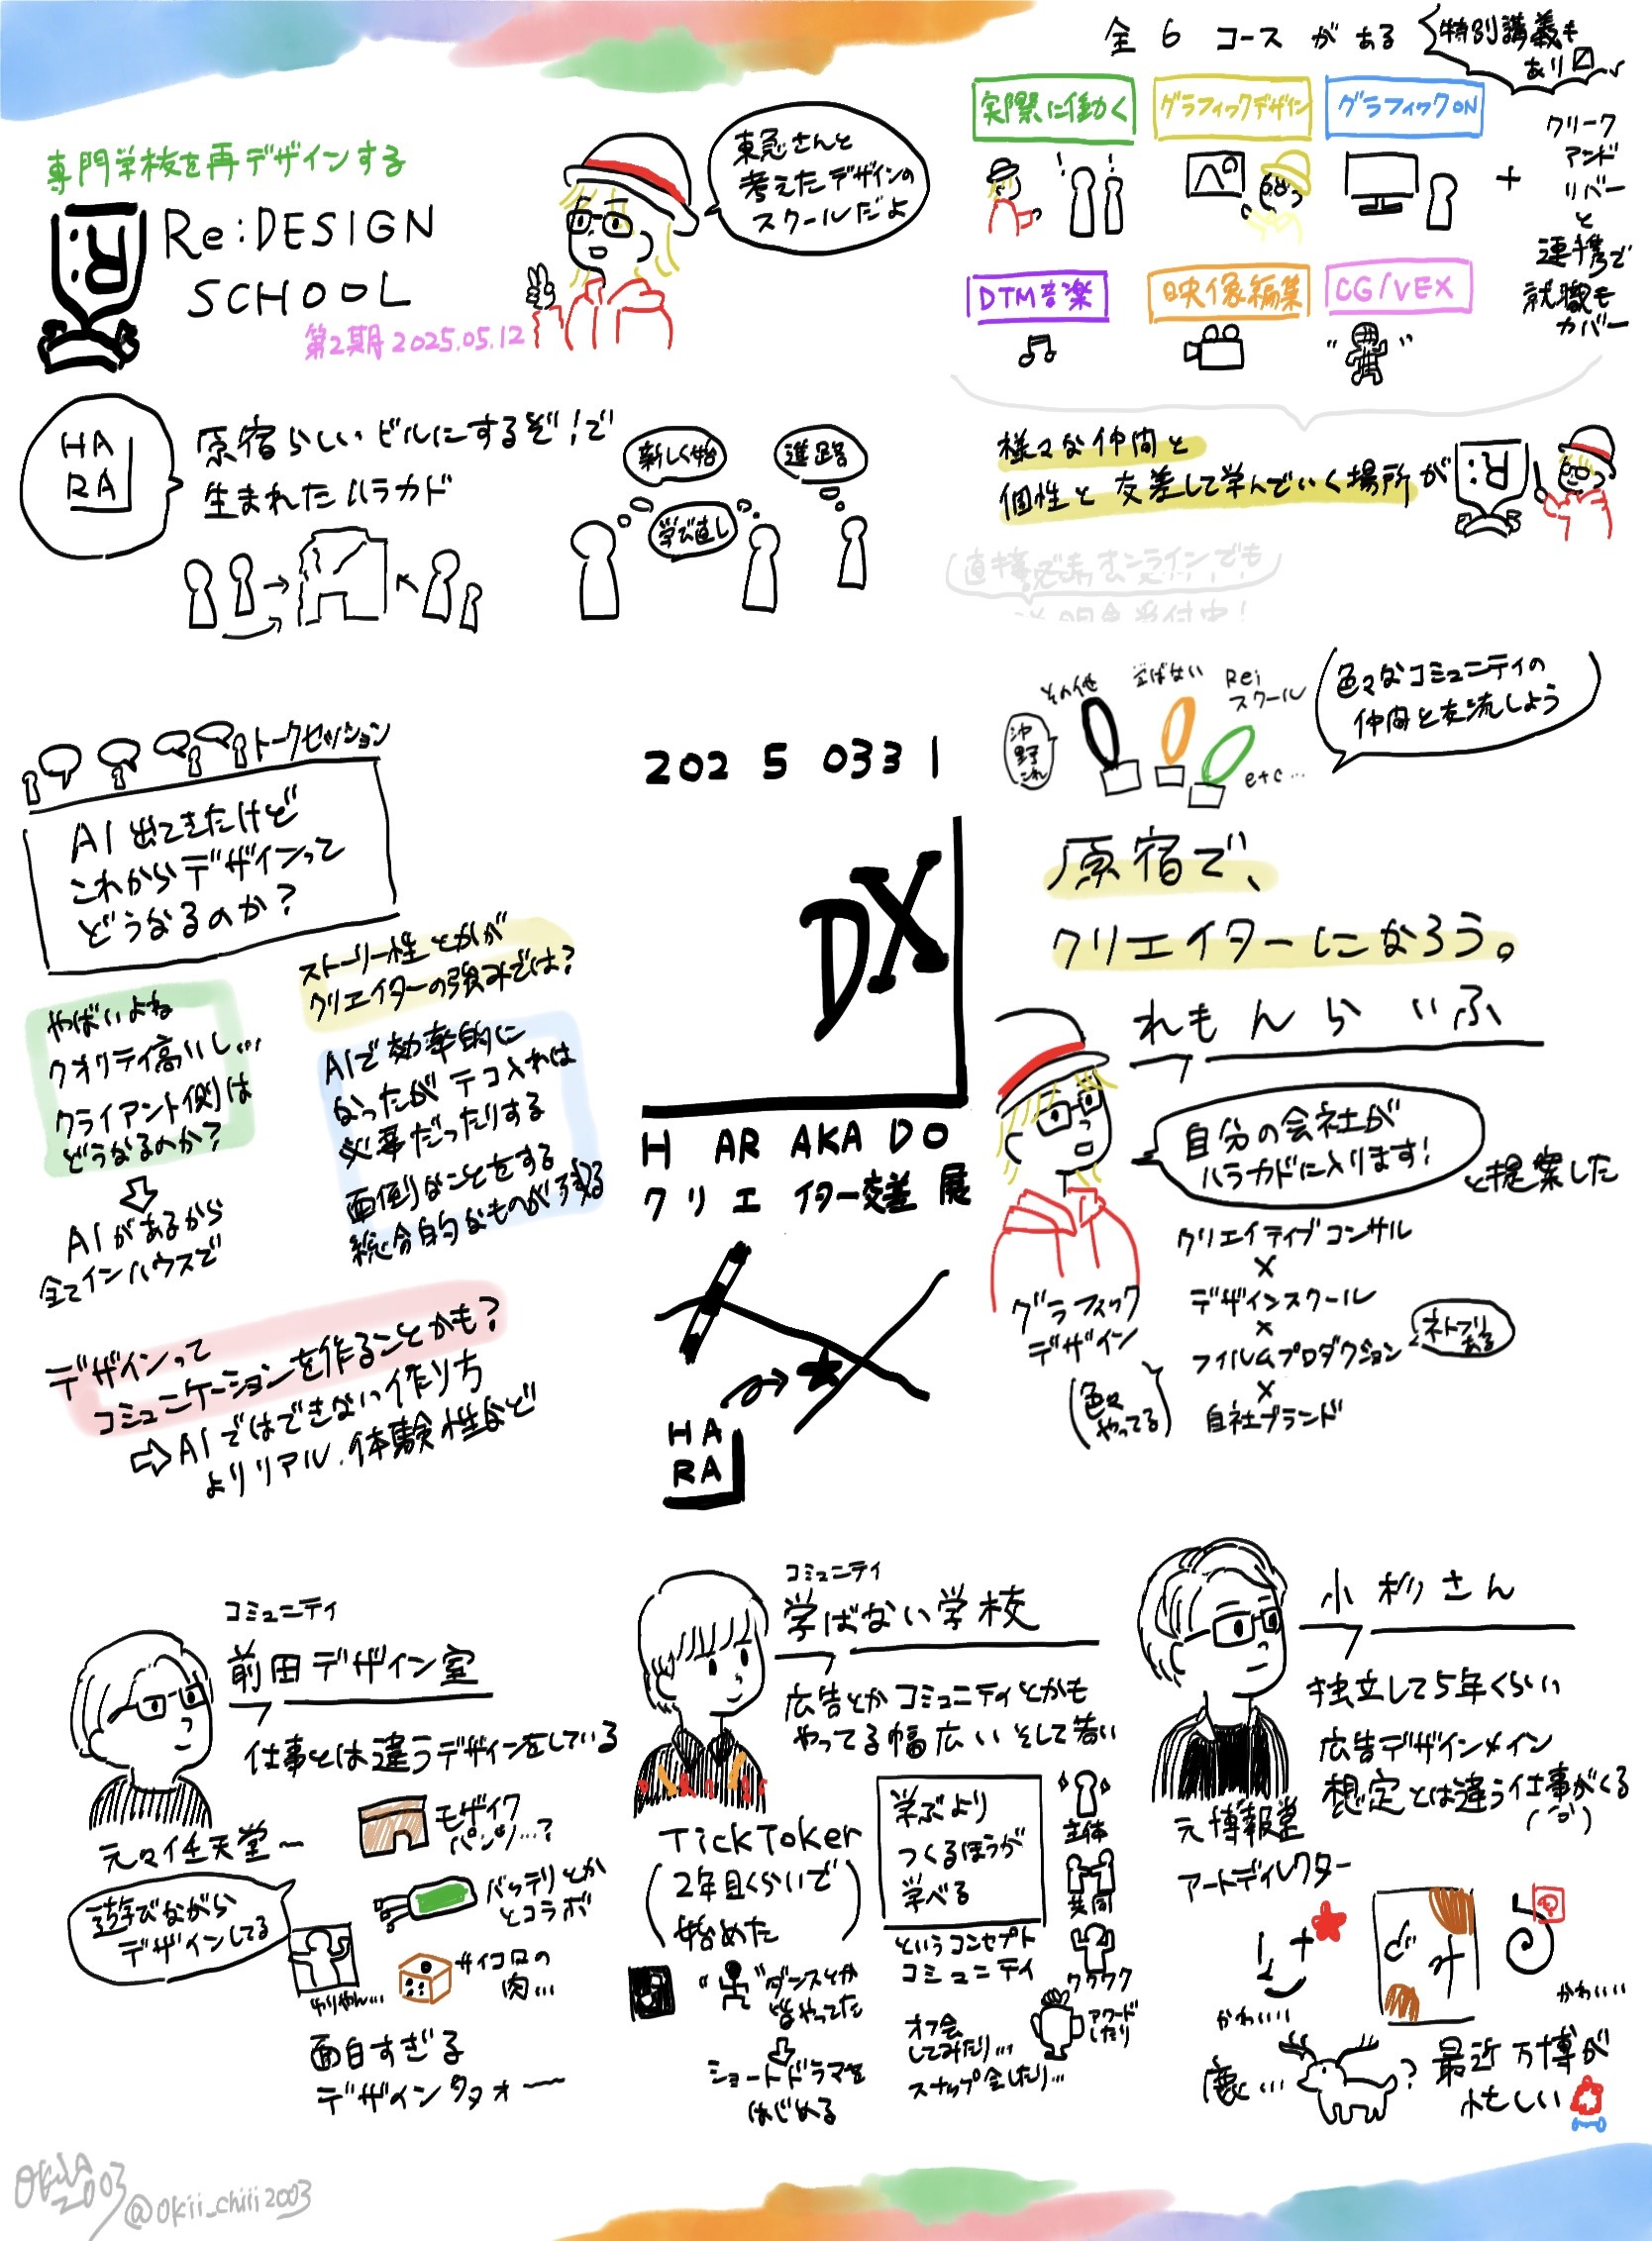 専門学校を再デザインする
:R
Re:DESIGN
SCHOOL
第2期 2025.05.12
東急さんと
考えたデザインの
スクールだよ
全6コースがある
特別講義も
あり
実際に働く
グラフィックデザイン
グラフィックON
DTM音楽
映像編集
CG/VEX
+
クリーク
アンド
リバー
と
連携で
就職も
カバー
HA
RA
原宿らしいビルにするぞ!で
生まれたハラカド
新しく始
学び直し
進路
様々な仲間と
個性と交差して学んでいく場所が
:R
オンラインでも
受付中!
トークセッション
AI出てきたけど
これからデザインって
どうなるのか?
ストーリー性とかが
クリエイターの強みでは?
やばいよね
クオリティ高いし...
クライアント側は
どうなるのか?
AIがあるから
全てインハウスで
AIで効率的に
なったがテコ入れは
必要だったりする
面倒なことをする
総合的なものが残る
デザインって
コミュニケーションを作ることかも?
⇨AIではできない作り方
よりリアル.体験性など
20250331
DX
HARAKADO
クリエイター交差展
HA
RA
その他
学ばない
Rei
スクール
沖野
これ
etc...
色々なコミュニティの
仲間と交流しよう
原宿で、
クリエイターになろう。
れもんらいふ
自分の会社が
ハラカドに入ります!
と提案した
グラフィック
デザイン
(色々
やってる)
クリエイティブコンサル
×
デザインスクール
×
フィルムプロダクション
ネトフリ
ある
×
自社ブランド
コミュニティ
前田デザイン室
仕事とは違うデザインをしている
元々任天堂〜
遊びながら
デザインしてる
モザイク
パンツ...?
バッテリとか
とコラボ
サイコロの
肉...
面白すぎる
デザインタヌォー
コミュニティ
学ばない学校
広告とかコミュニティとかも
やってる幅広いそして若い
TickToker
(2年目くらいで
始めた)
"ダンスとか
皆やってた
ショートドラマを
はじめる
学ぶより
つくるほうが
学べる
というコンセプト
コミュニティ
オフ会
してみたり...
スナップ会したり...
主体
共同
ワクワク
アワード
したり
小杉さん
独立して5年くらい
広告デザインメイン
想定とは違う仕事がくる
元博報堂
アートディレクター
かわいい
かわいい
鹿...
?
最近万博が
忙しい
Okii
2003
@okii_chiii2003